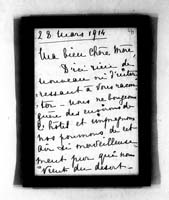 28 mars 1914
Ma bien chère Mère
D'ici rien de
nouveau ni d'intér
ressant à vous racon
ter - nous ne bougeons
guère des environs de
l'hôtel et emplissons
nos poumons de cet
air si merveilleuse
ment pur qui nous
vient du désert -